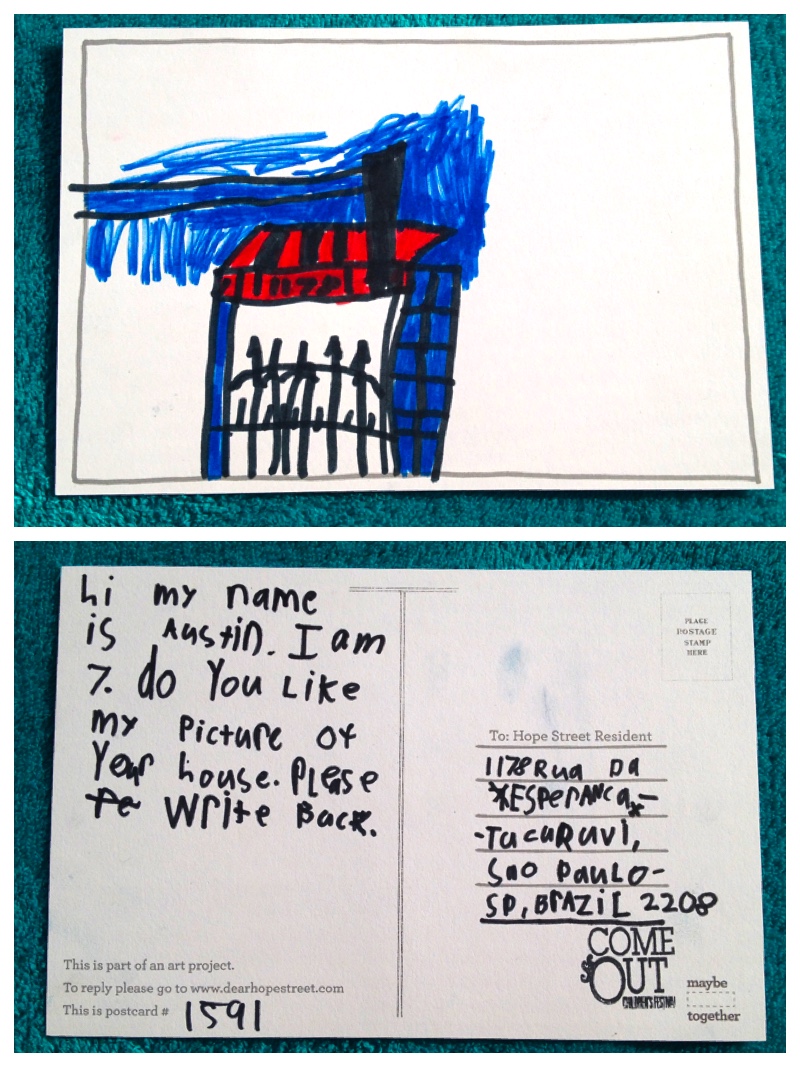 hi my name
is Austin. I am
7. do You Like
my Picture of
Your house. Please
Write Back.
This is part of an art project.
To reply please go to www.dearhopestreet.com
This is postcard # 1591
PLACE
POSTAGE
STAMP
HERE
To: Hope Street Resident
1178 Rua Da
*ESPeRANCa*-
-TucuRuvi,
Sao PauLo-
SP, BrAZiL 2208
COME
OUT
CHILDREN'S FESTIVAL
maybe
together